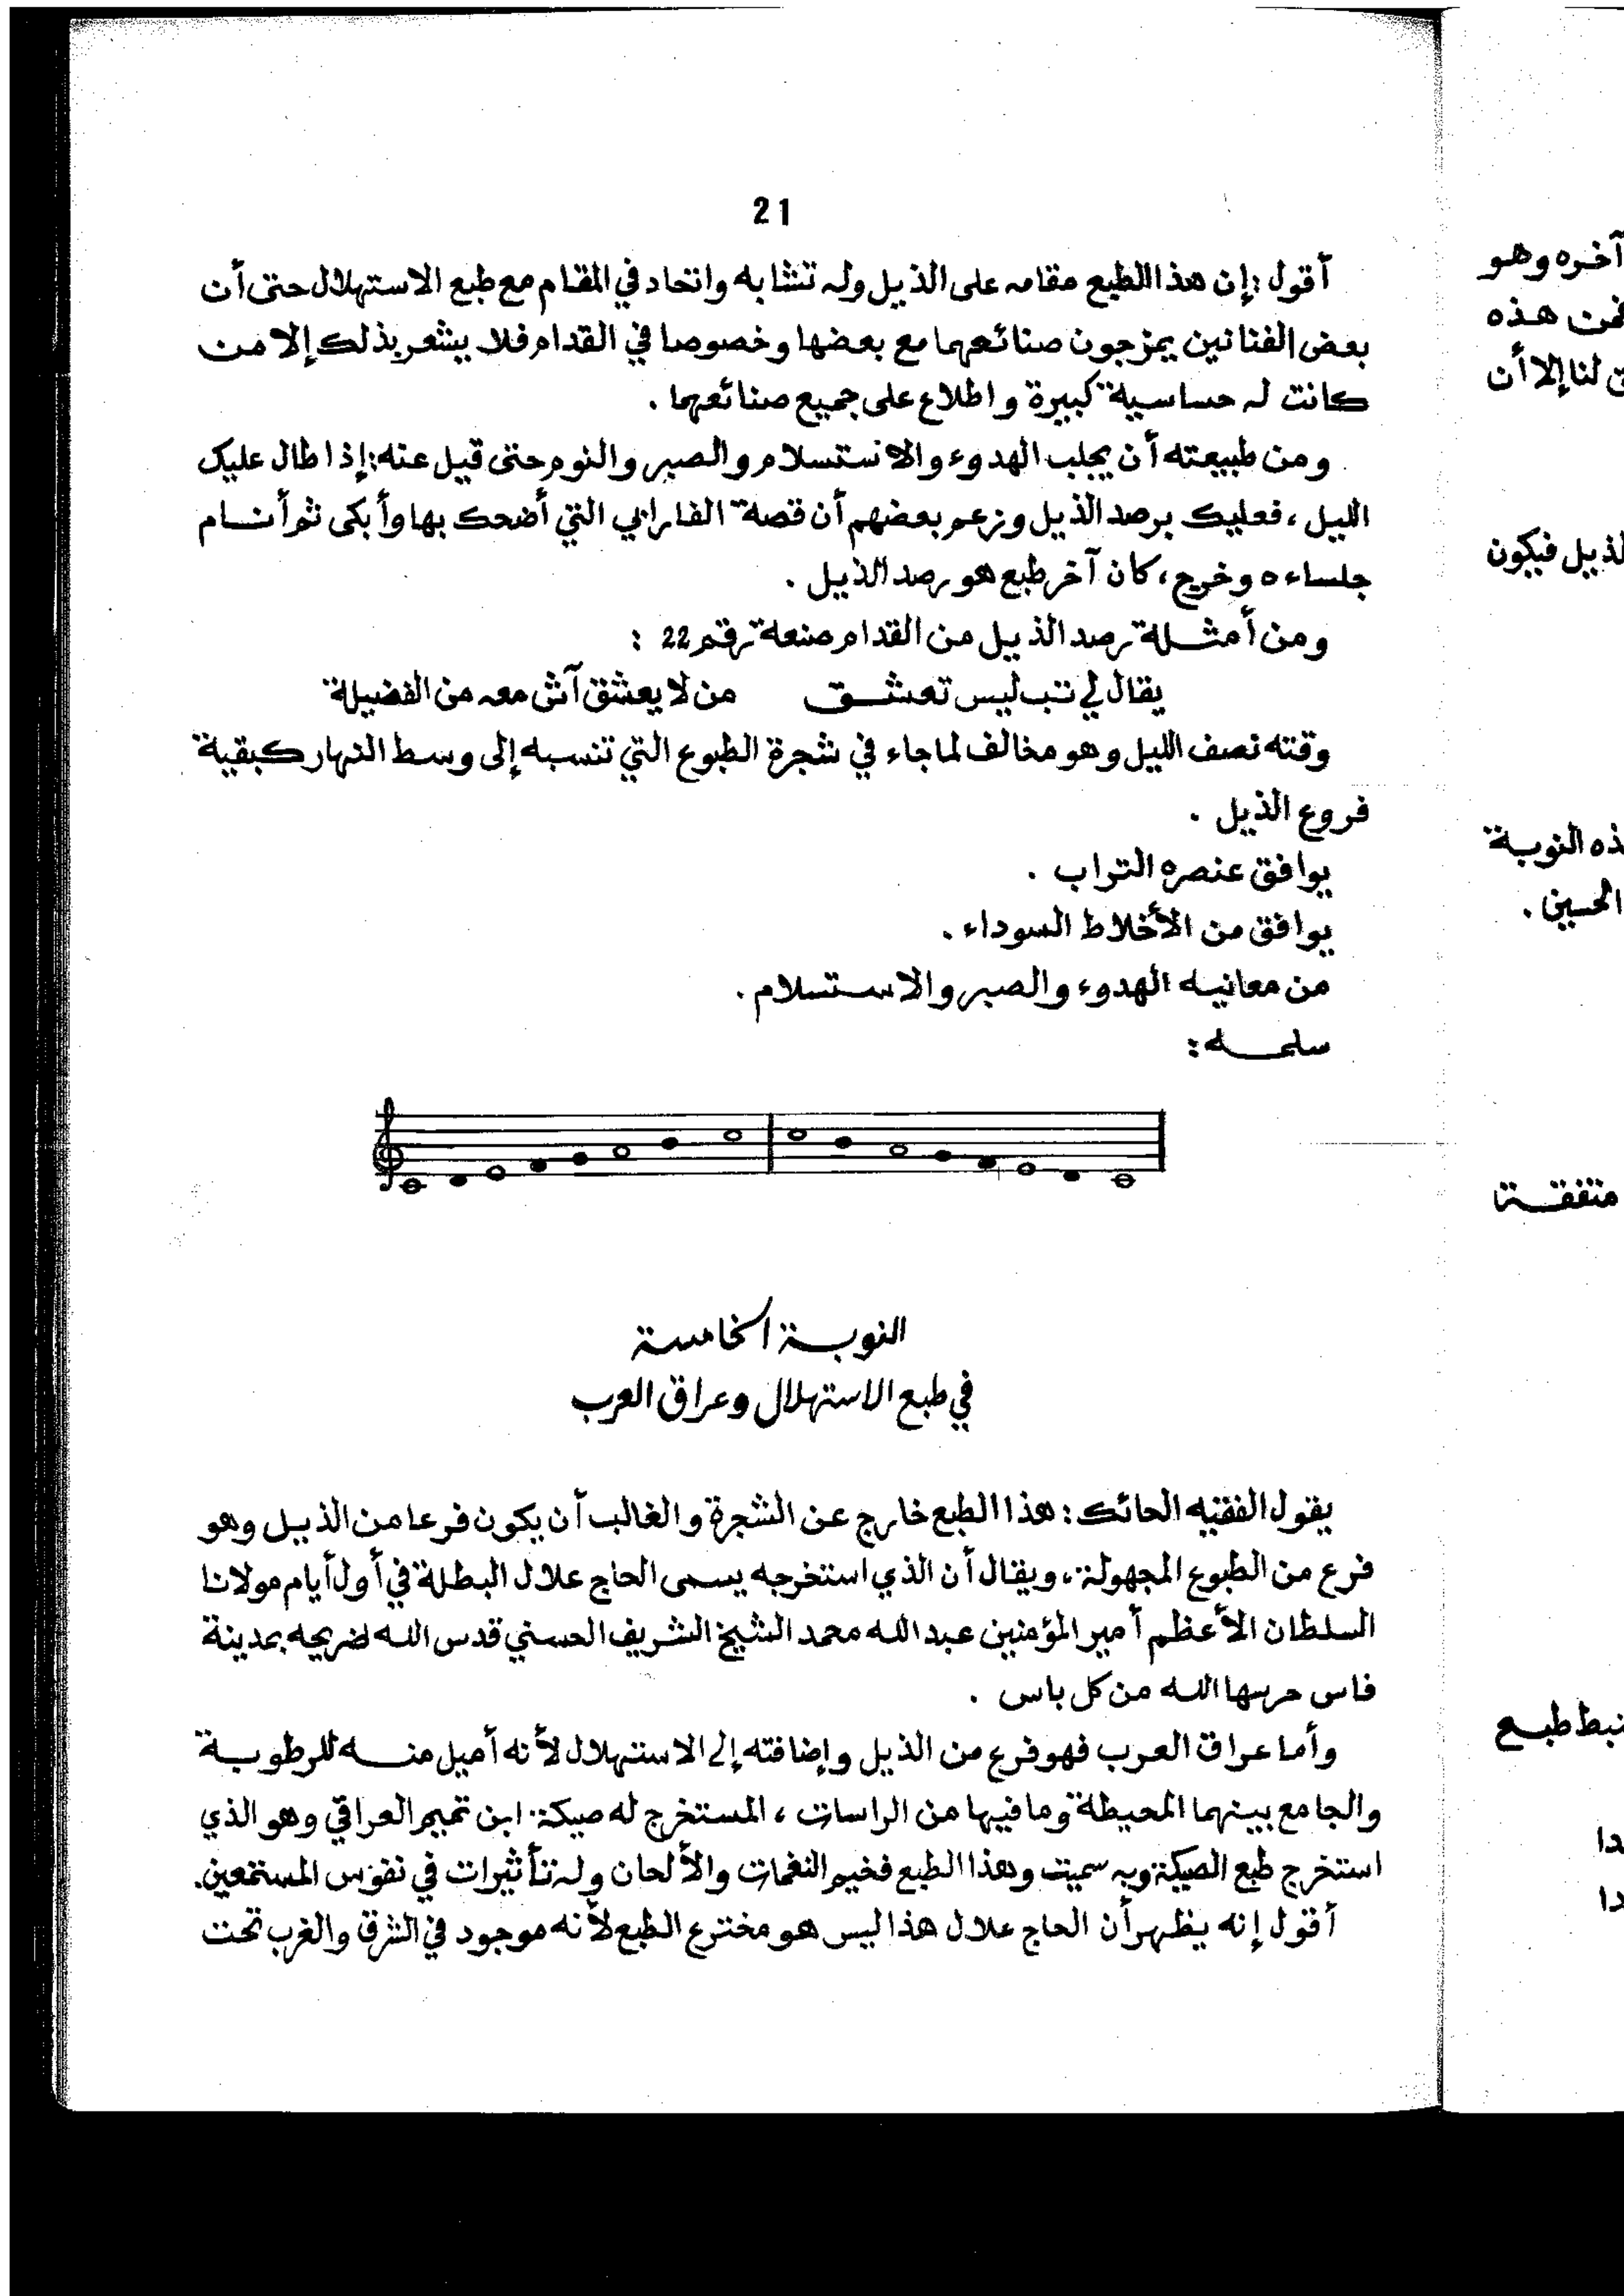 21
أقول : إن هذا الطبع مقامه على الذيل وله تشابه واتحاد في المقام مع طبع الاستهلال حتى أن
بعض الفنانين يمزجون صنائعهما مع بعضها وخصوصا في القدام فلا يشعر بذلك إلا من
كانت له حساسية كبيرة واطلاع على جميع صنائعهما .
ومن طبيعته أن يجلب الهدوء والاستسلام والصبر والنوم حتى قيل عنه : إذا طال عليك
الليل ، فعليك برصد الذيل وزعم بعضهم أن قصة الفارابي التي أضحك بها وأبكى ثم أنام
جلساءه وخرج ، كان آخر طبع هو رصد الذيل .
ومن أمثلة رصد الذيل من القدام صنعة رقم 22 :
يقال لي تب ليس تعشق من لا يعشق آش معه من الفضيلة
وقته نصف الليل وهو مخالف لما جاء في شجرة الطبوع التي تنسبه إلى وسط النهار كبقية
فروع الذيل .
يوافق عنصره التراب .
يوافق من الأخلاط السوداء .
من معانيه الهدوء والصبر والاستسلام .
سلمه :
النوبة الخامسة
في طبع الاستهلال وعراق العرب
يقول الفقيه الحائك : هذا الطبع خارج عن الشجرة والغالب أن يكون فرعا من الذيل وهو
فرع من الطبوع المجهولة ، ويقال أن الذي استخرجه يسمى الحاج علال البطلة في أول أيام مولانا
السلطان الأعظم أمير المؤمنين عبد الله محمد الشيخ الشريف الحسني قدس الله ضريحه بمدينة
فاس حرسها الله من كل باس .
وأما عراق العرب فهو فرع من الذيل وإضافته إلى الاستهلال لأنه أميل منه للرطوبة
والجامع بينهما المحيطة وما فيها من الراسات ، المستخرج له صيكة ابن تميم العراقي وهو الذي
استخرج طبع الصيكة وبه سميت وهذا الطبع فخيم النغمات والألحان وله تأثيرات في نفوس المستمعين .
أقول إنه يظهر أن الحاج علال هذا ليس هو مخترع الطبع لأنه موجود في الشرق والغرب تحت
آخره وهو
هذه
لنا إلا أن
الذيل فيكون
هذه النوبة
الحسين .
متفقة
طبع